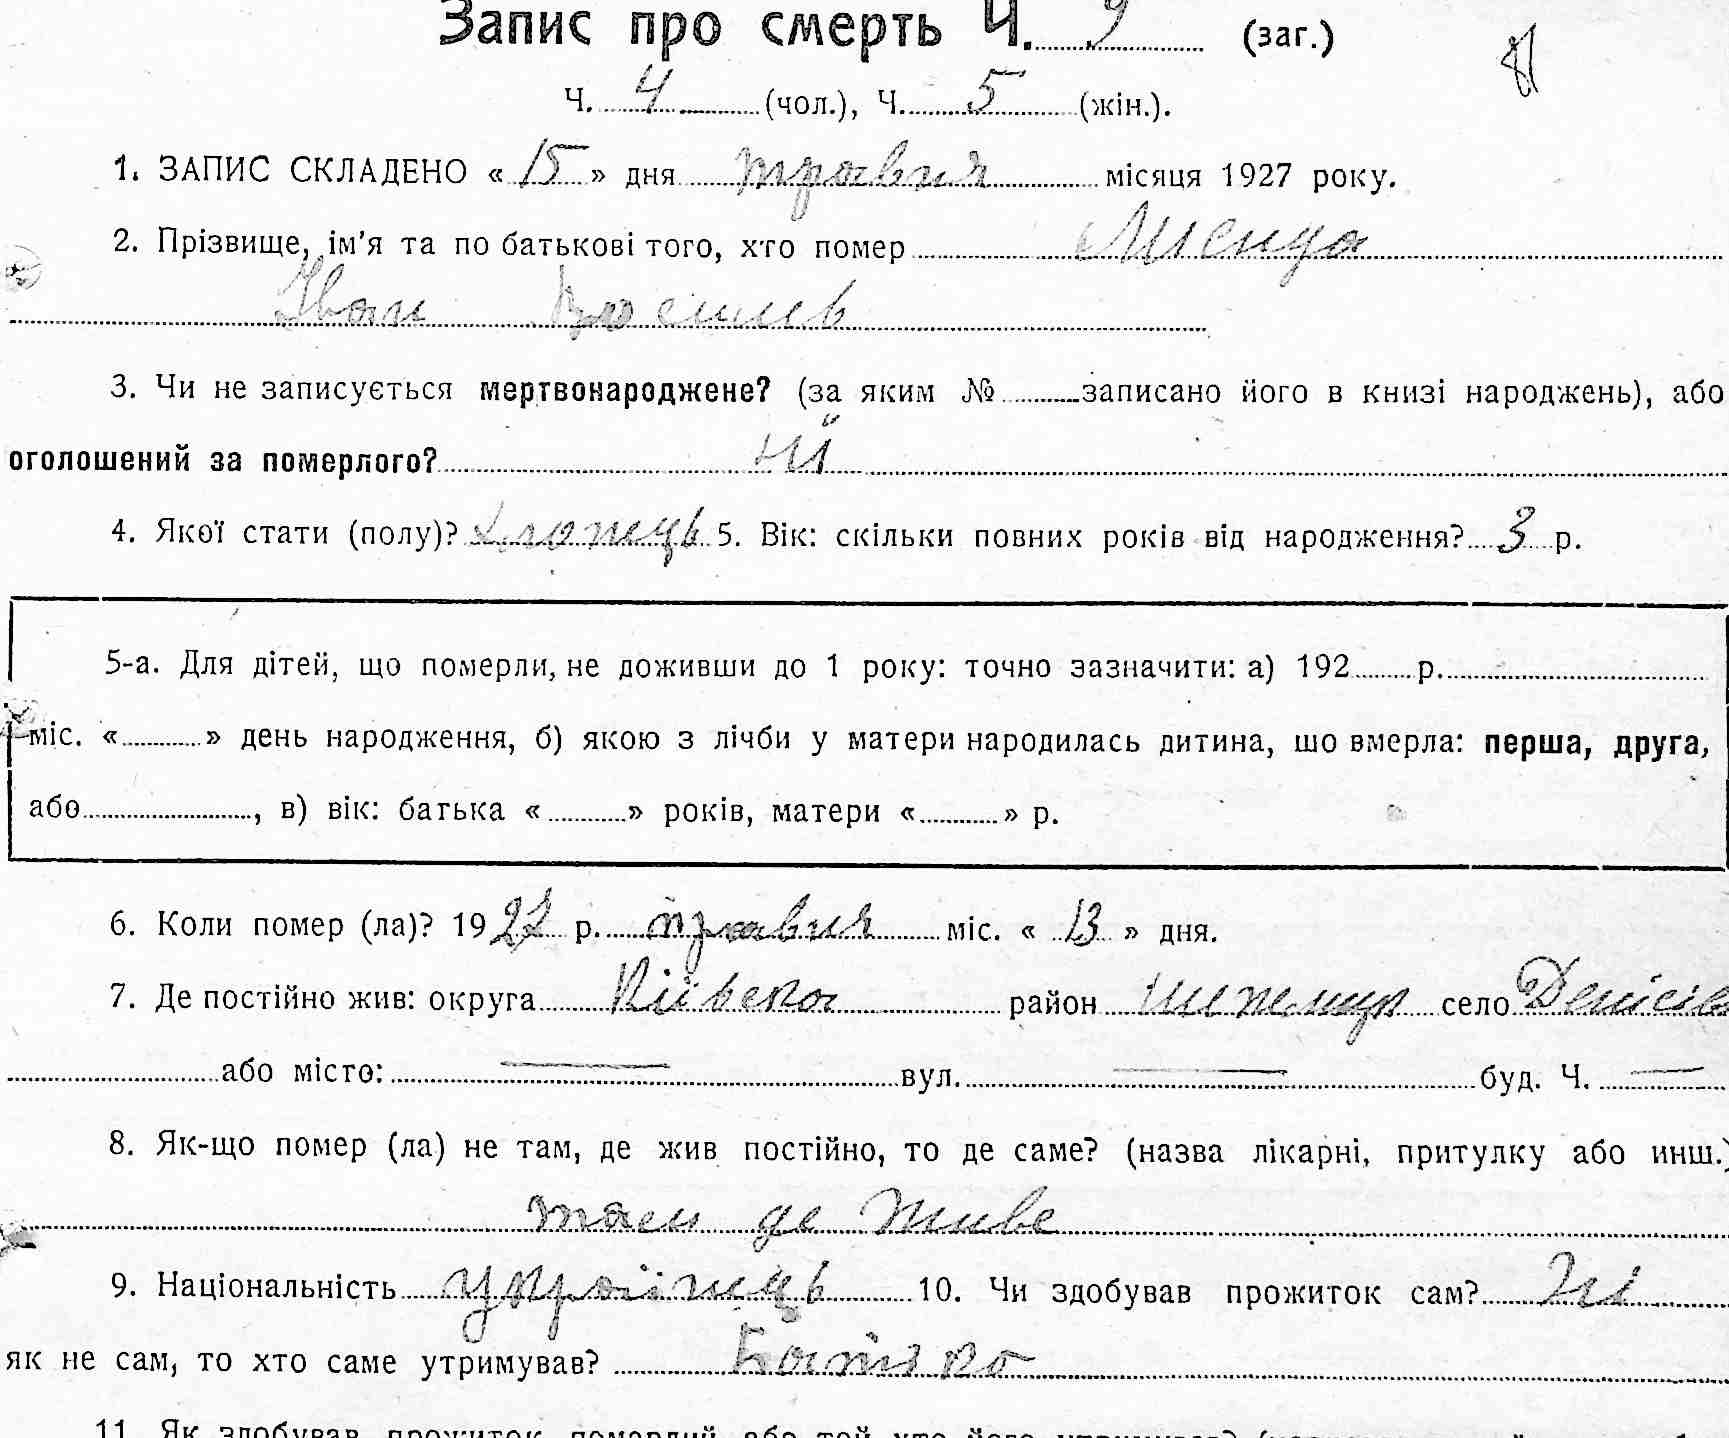 Запис про смерть Ч. 9 (заг.)
Ч. 4 (чол.), Ч. 5 (жін.).
1. ЗАПИС СКЛАДЕНО « 15 » дня травня місяця 1927 року.
2. Прізвище, ім'я та по батькові того, хто помер
Іван
3. Чи не записується мертвонароджене? (за яким № записано його в книзі народжень), або
оголошений за померлого? ні
4. Якої стати (полу)? хлопець 5. Вік: скільки повних років від народження? 3 р.
5-а. Для дітей, що померли, не доживши до 1 року: точно зазначити: а) 192 р.
міс. « » день народження, б) якою з лічби у матери народилась дитина, шо вмерла: перша, друга,
або , в) вік: батька « » років, матери « » р.
6. Коли помер (ла)? 1927 р. травня міс. « 13 » дня.
7. Де постійно жив: округа район село
або місто: — вул. — буд. Ч. —
8. Як-що помер (ла) не там, де жив постійно, то де саме? (назва лікарні, притулку або инш.)
там де живе
9. Національність українець 10. Чи здобував прожиток сам? Ні
як не сам, то хто саме утримував? Батько
11. Як здобував прожиток померлий або той хто його утримував?